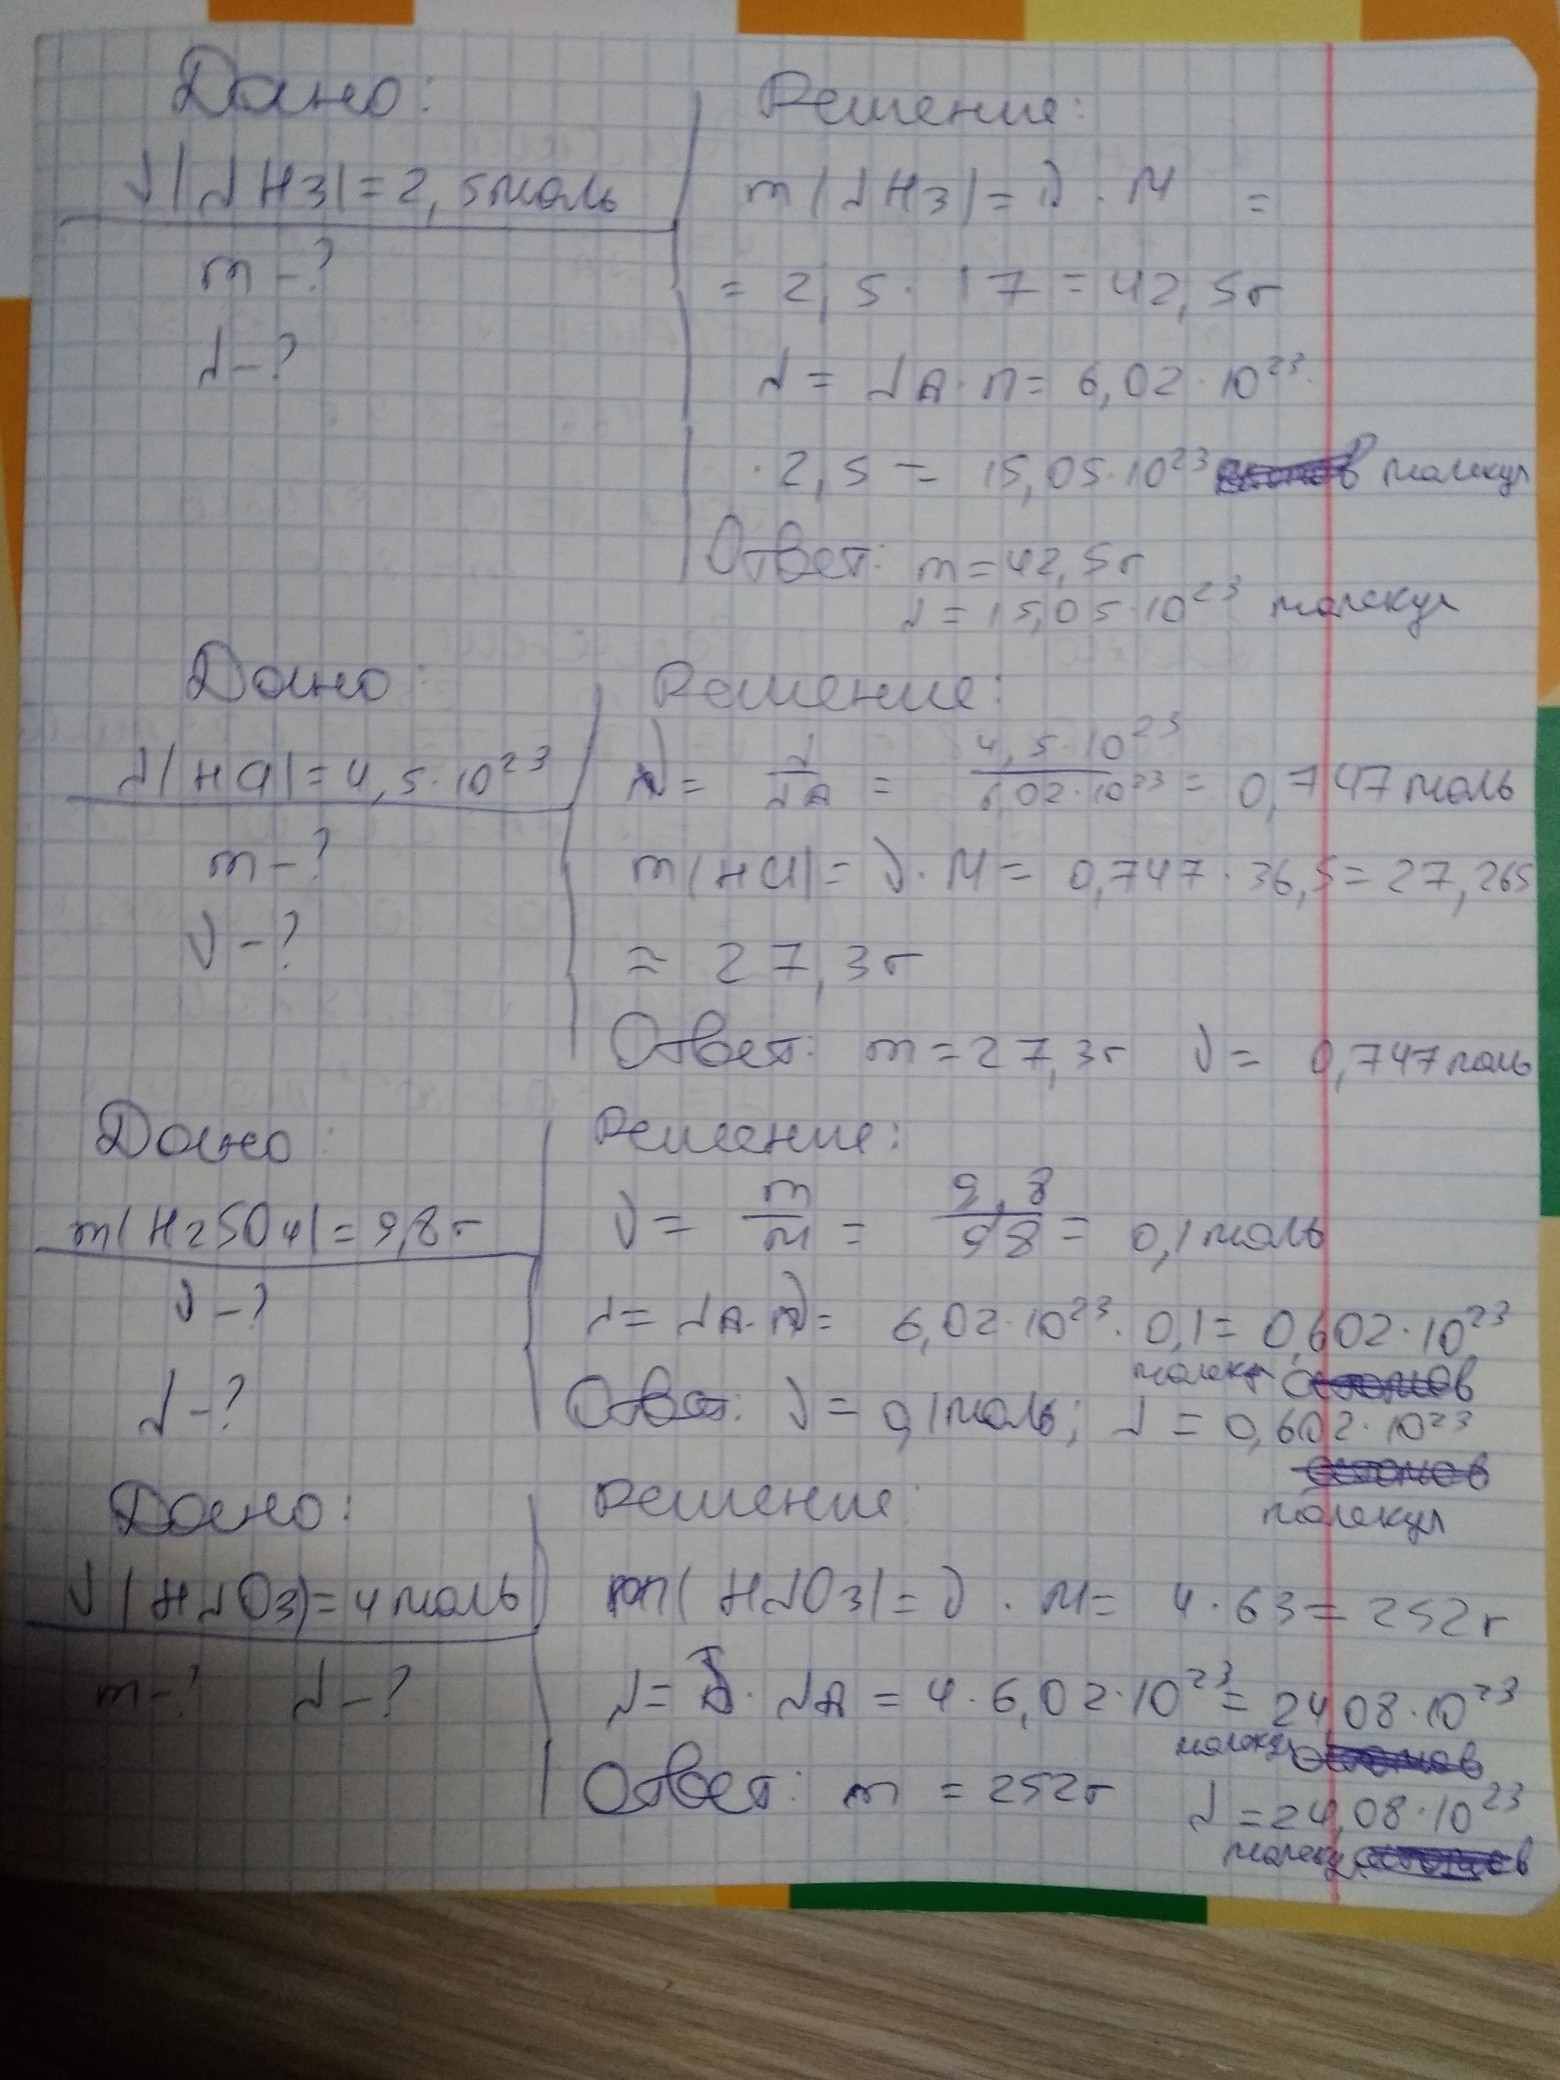 Дано:
ν(NH3)=2,5моль
m-?
N-?
Решение:
m(NH3)=ν·M =
= 2,5·17=42,5г
N = NA·n= 6,02·10²³·
·2,5 = 15,05·10²³ молекул
Ответ: m=42,5г
N=15,05·10²³ молекул
Дано:
N(HCl)=4,5·10²³
m-?
ν-?
Решение:
ν= N/NA = 4,5·10²³/6,02·10²³ = 0,747моль
m(HCl)=ν·M= 0,747·36,5=27,265
≈ 27,3г
Ответ: m=27,3г ν= 0,747моль
Дано:
m(H2SO4)=9,8г
ν-?
N-?
Решение:
ν= m/M = 9,8/98 = 0,1моль
N= NA·ν= 6,02·10²³·0,1= 0,602·10²³
молек
Ответ: ν=0,1моль; N=0,602·10²³
молекул
Дано:
ν(HNO3)=4моль
m-? N-?
Решение:
m(HNO3)=ν·M= 4·63=252г
N= ν·NA=4·6,02·10²³=24,08·10²³
молекул
Ответ: m=252г N=24,08·10²³
молекул